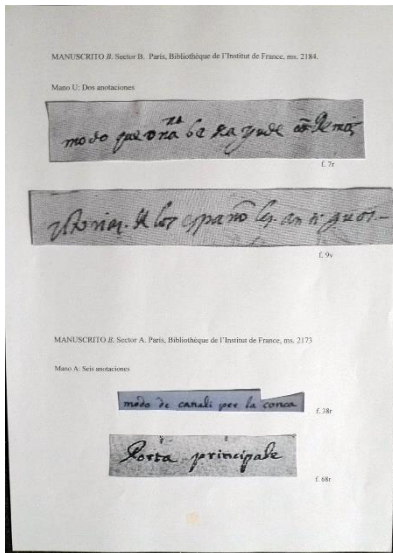 MANUSCRITO B. Sector B. Paris, Bibliothèque de l'Institut de France, ms. 2184.
Mano U: Dos anotaciones
modo que
f. 7r
de los españoles antiguos
f. 9v
MANUSCRITO B. Sector A. Paris, Bibliothèque de l'Institut de France, ms. 2173
Mano A: Seis anotaciones
modo de canali per la conca
f. 38r
Porta principale
f. 68r